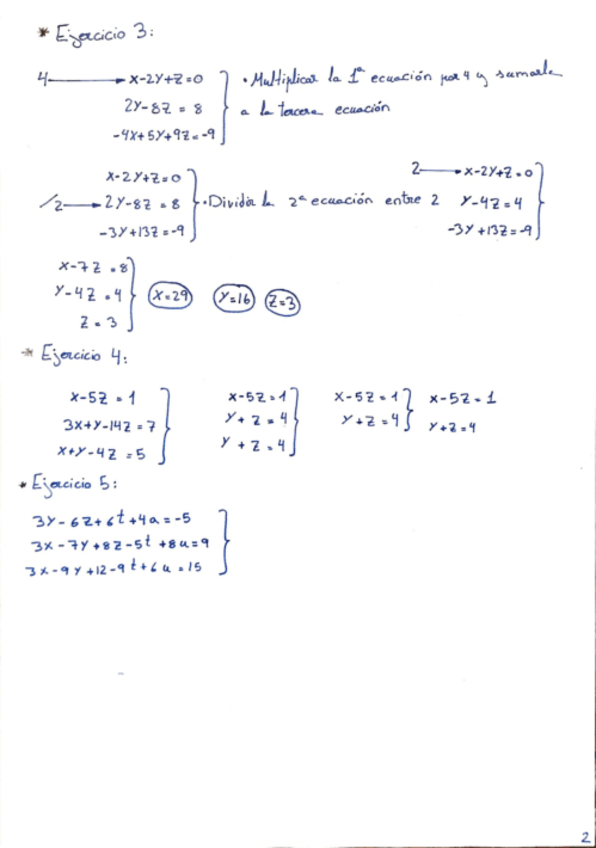 * Ejercicio 3:
4 → x-2y+z=0 · Multiplicar la 1ª ecuación por 4 y sumarle
2y-8z = 8 a la tercera ecuación
-4x+5y+9z=-9
x-2y+z=0 2 → x-2y+z=0
/2 → 2y-8z = 8 · Dividir la 2ª ecuación entre 2 y-4z=4
-3y+13z=-9 -3y+13z=-9
x-7z=8
y-4z=4 x=29 y=16 z=3
z=3
* Ejercicio 4:
x-5z=1 x-5z=1 x-5z=1 x-5z=1
3x+y-14z=7 y+z=4 y+z=4 y+z=4
x+y-4z=5 y+z=4
* Ejercicio 5:
3y-6z+6t+4u=-5
3x-7y+8z-5t+8u=9
3x-9y+12-9t+6u=15
2